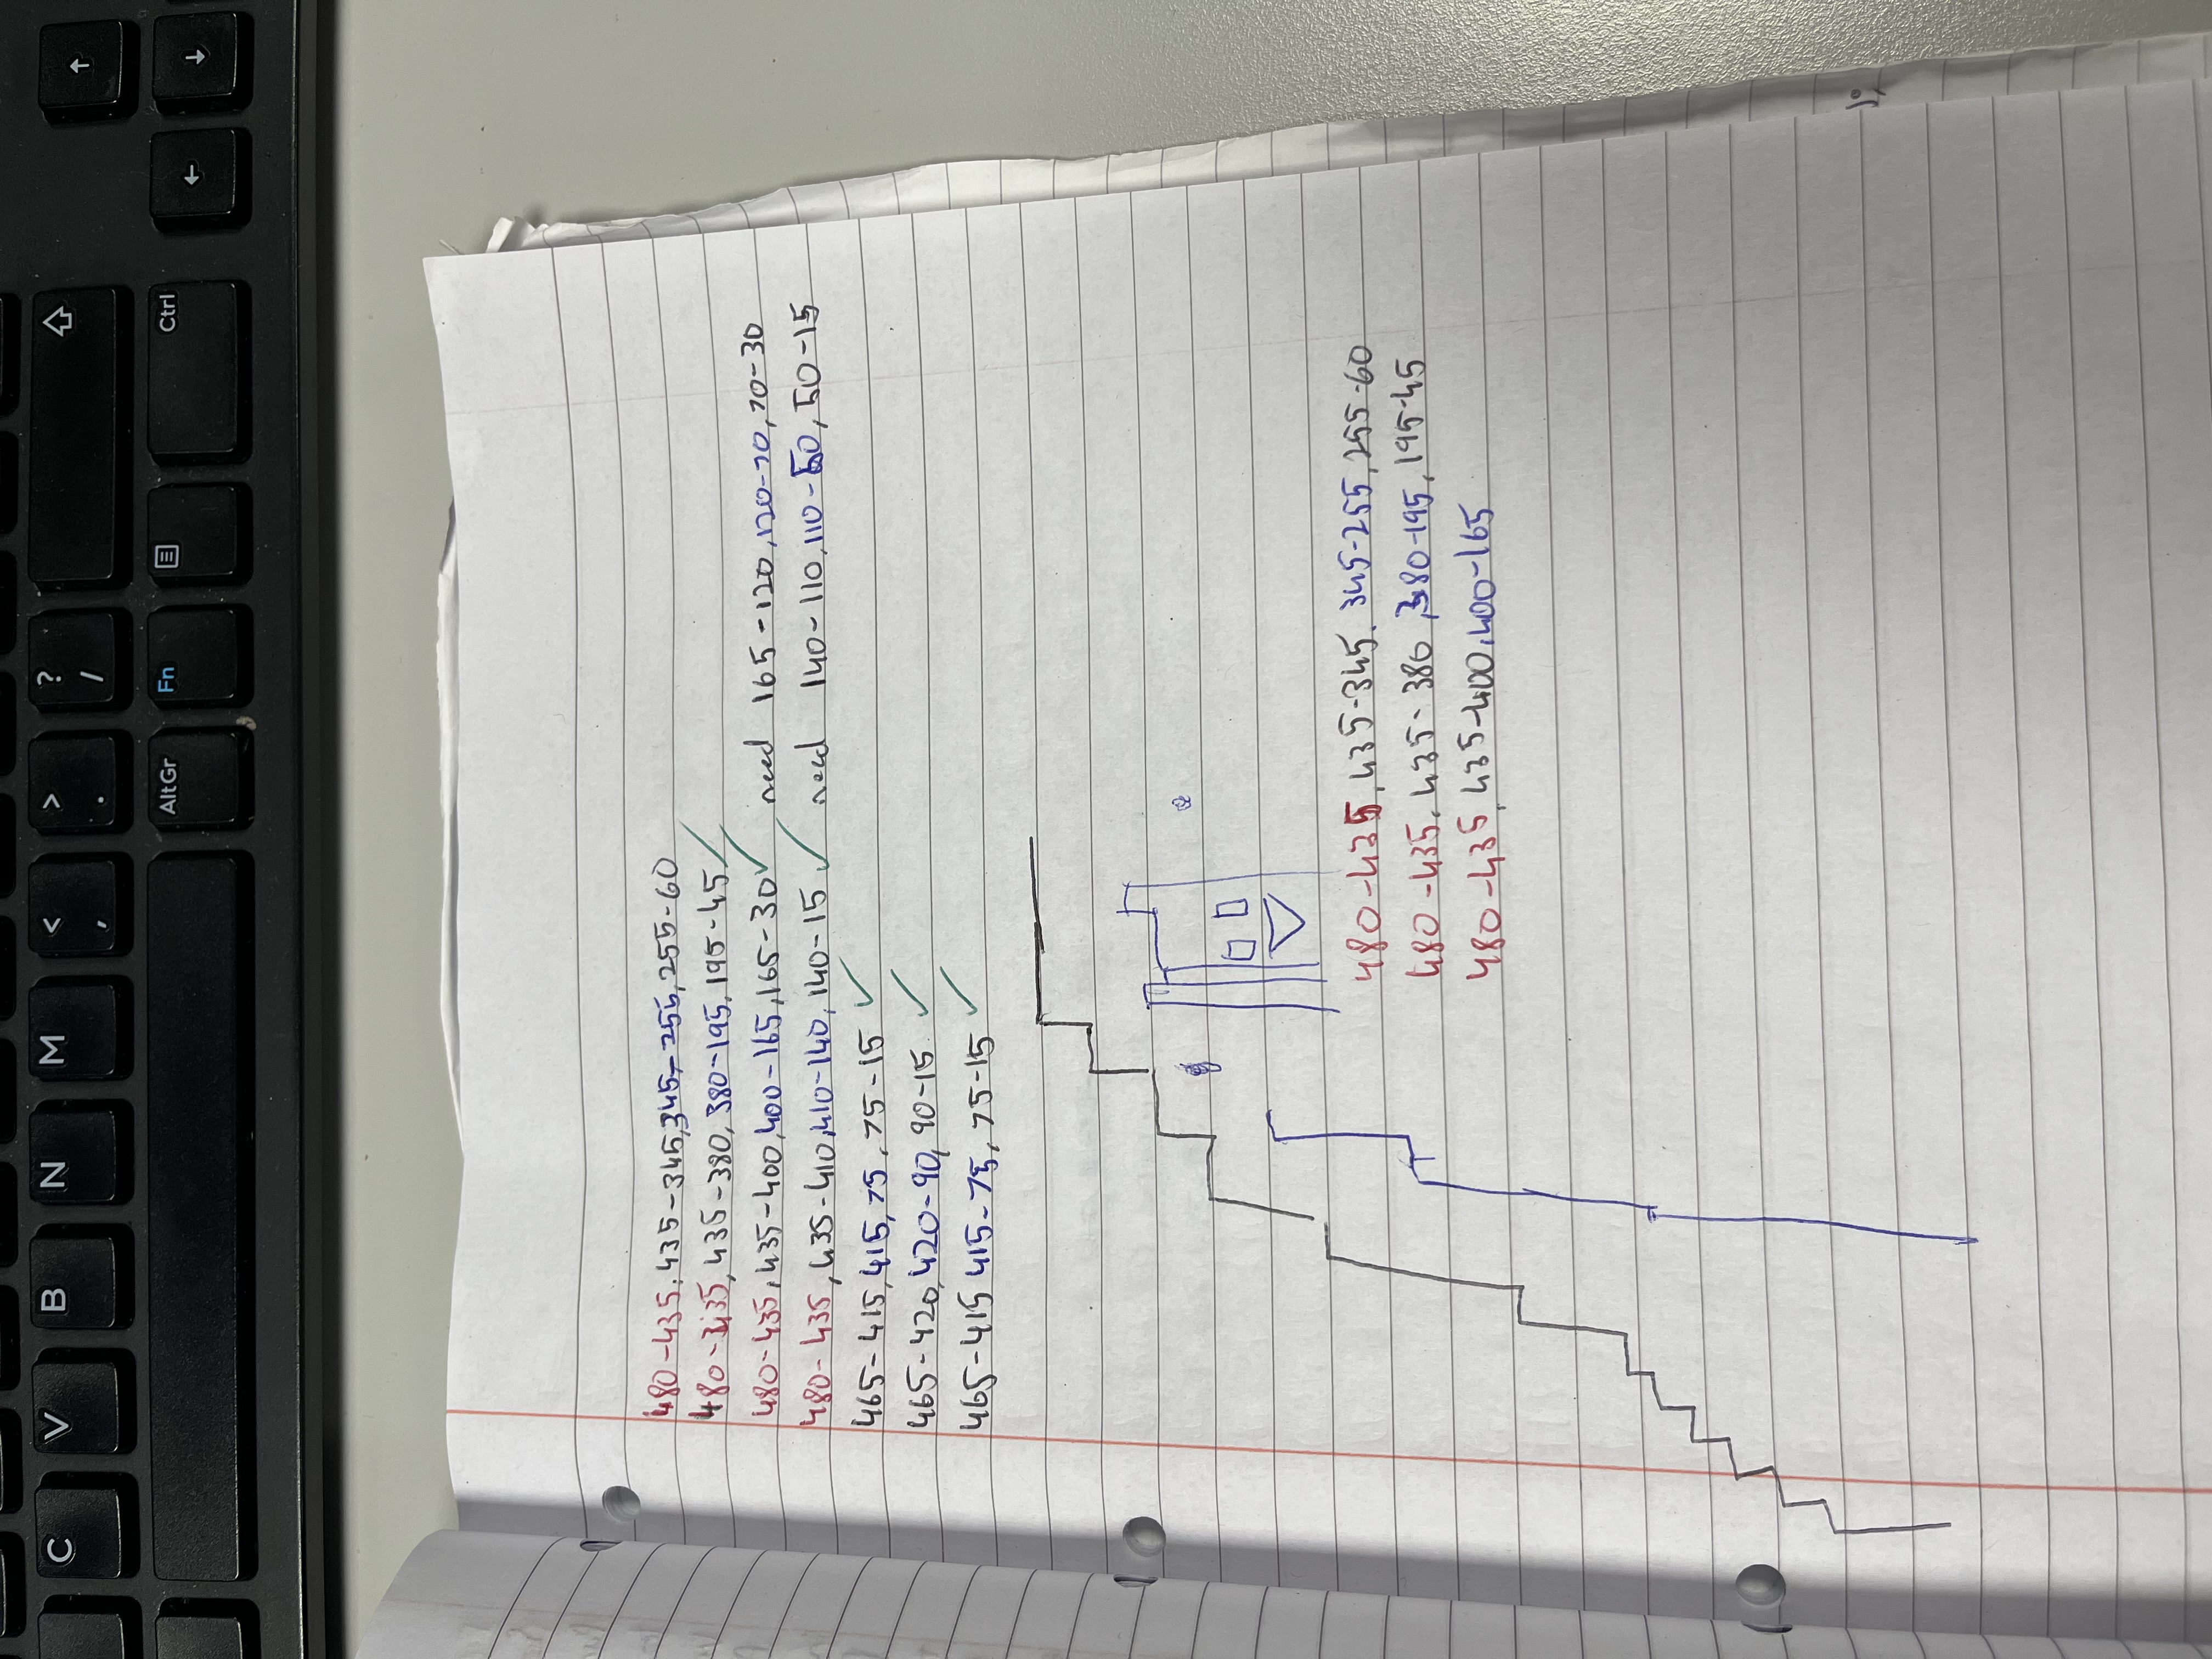 C V B N M < , > . ? /
AltGr Fn Ctrl
480-435, 435-345, 345-255, 255-60
480-435, 435-380, 380-195, 195-45 ✓
480-435, 435-400, 400-165, 165-30 ✓ need 165-120, 120-70, 70-30
480-435, 435-410, 410-140, 140-15 ✓ need 140-110, 110-50, 50-15
465-415, 415, 75, 75-15 ✓
465-420, 420-90, 90-15 ✓
465-415 415-75, 75-15 ✓
480-435, 435-345. 345-255, 255-60
480-435, 435-380, 380-195, 195-45
480-435, 435-400, 400-165